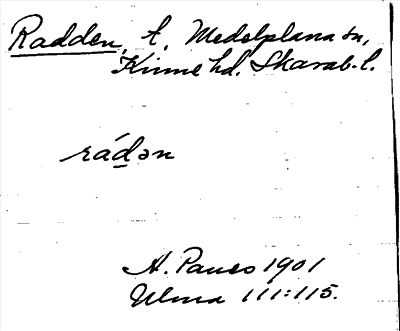 Radden, t, Medelplana sn,
Kinne hd. Skarab. l.
rádən
A. Paues 1901
Ulma 111:115.